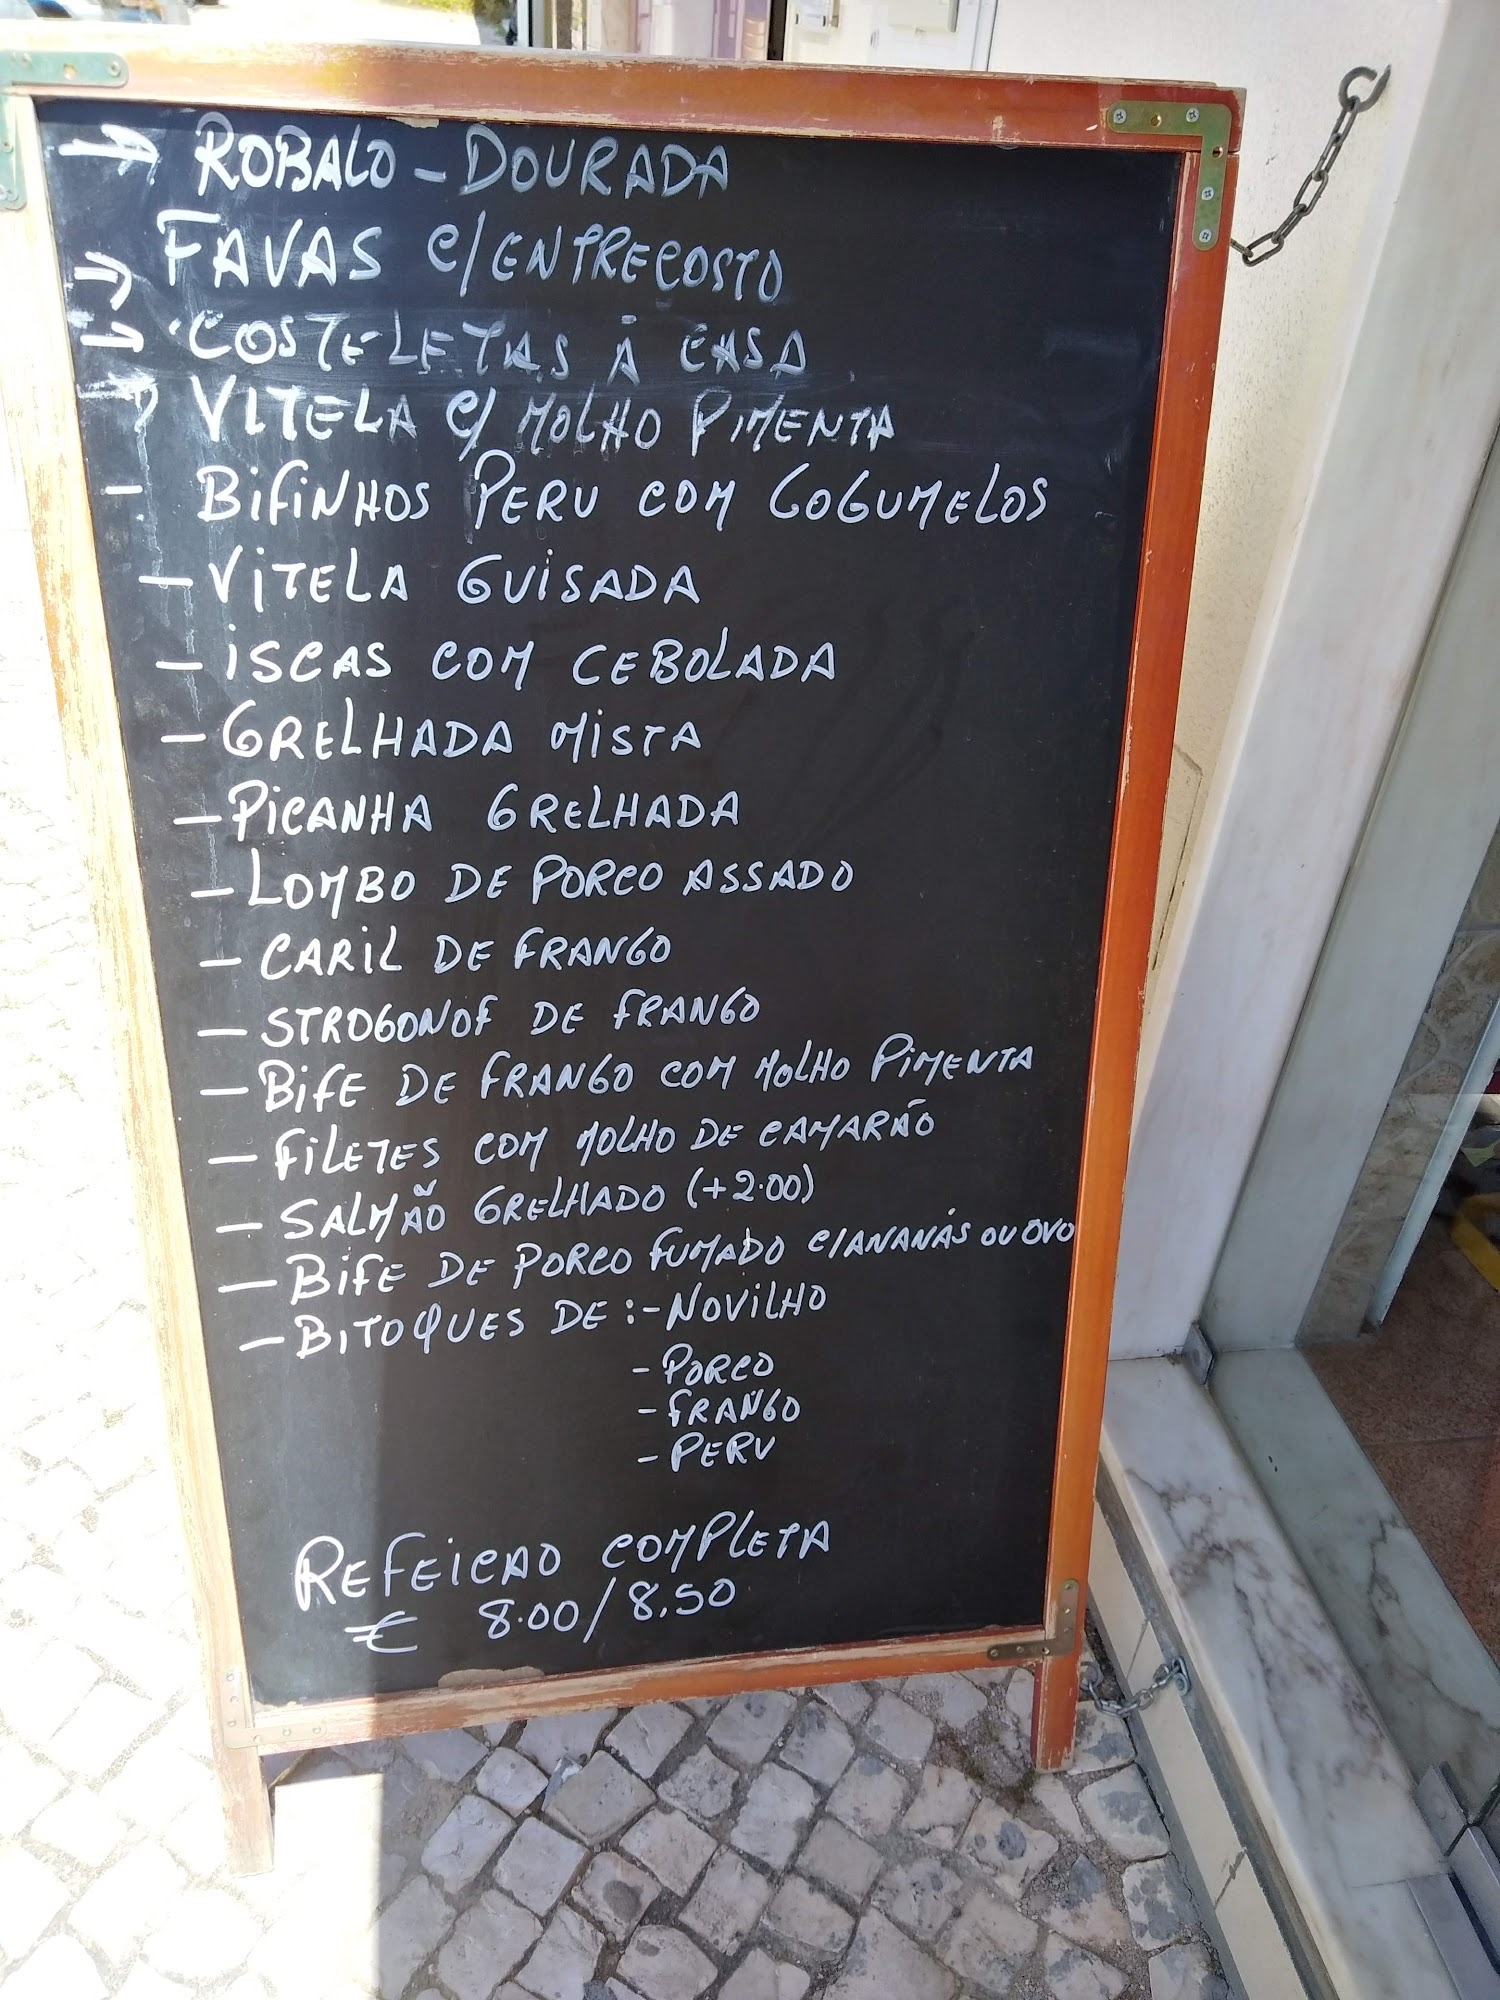 → ROBALO - DOURADA
→ FAVAS C/ENTRECOSTO
→ COSTELETAS À CASA
→ VITELA C/ MOLHO PIMENTA
- BIFINHOS PERU COM COGUMELOS
- VITELA GUISADA
- ISCAS COM CEBOLADA
- GRELHADA MISTA
- PICANHA GRELHADA
- LOMBO DE PORCO ASSADO
- CARIL DE FRANGO
- STROGONOF DE FRANGO
- BIFE DE FRANGO COM MOLHO PIMENTA
- FILETES COM MOLHO DE CAMARÃO
- SALMÃO GRELHADO (+2.00)
- BIFE DE PORCO FUMADO C/ANANÁS OU OVO
- BITOQUES DE :- NOVILHO
- PORCO
- FRANGO
- PERU
REFEICAO COMPLETA
€ 8.00/8.50